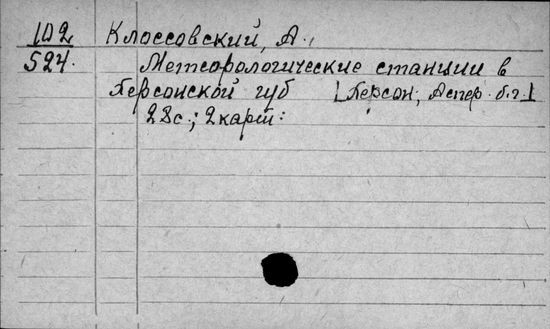 102 Клоссовский, А.
524. Метеорологические станции в
Херсонской губ [Херсон, Аспер. б.г.]
28с.; 2карт: